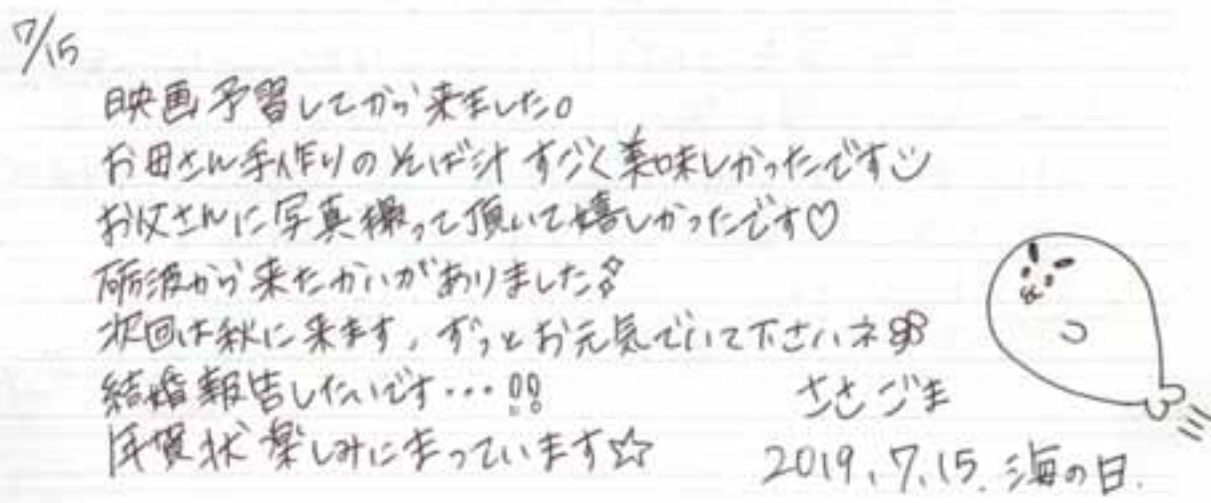 7/15
映画予習してから来ました。
お母さん手作りのそば汁 すごく美味しかったです
お父さんに写真撮って頂いて嬉しかったです♡
砺波から来たかいがありました
次回は秋に来ます、ずっとお元気でいて下さいネ
結婚報告したいです・・・!!
年賀状楽しみにまっています☆
ささごま
2019.7.15. 海の日.